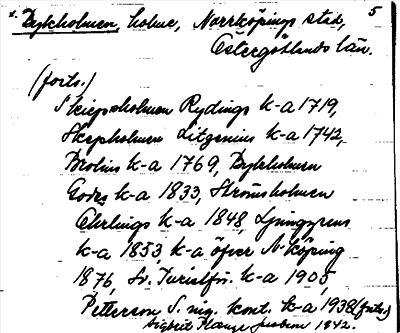 x. Bykholmen, holme, Norrköpings stad, 5
Östergötlands län.
(forts.)
Skiepsholmen Rydings k-a 1719,
Skepholmen Litzenius k-a 1742,
Brolins k-a 1769, Bykholmen
Godes k-a 1833, Strömsholmen
Ehrlings k-a 1848, Ljunggrens
k-a 1853, k-a öfver N-köping
1876, Sv. Turistför. k-a 1905
Petterson, S. ing. kont. k-a 1938 (forts.)
1942.